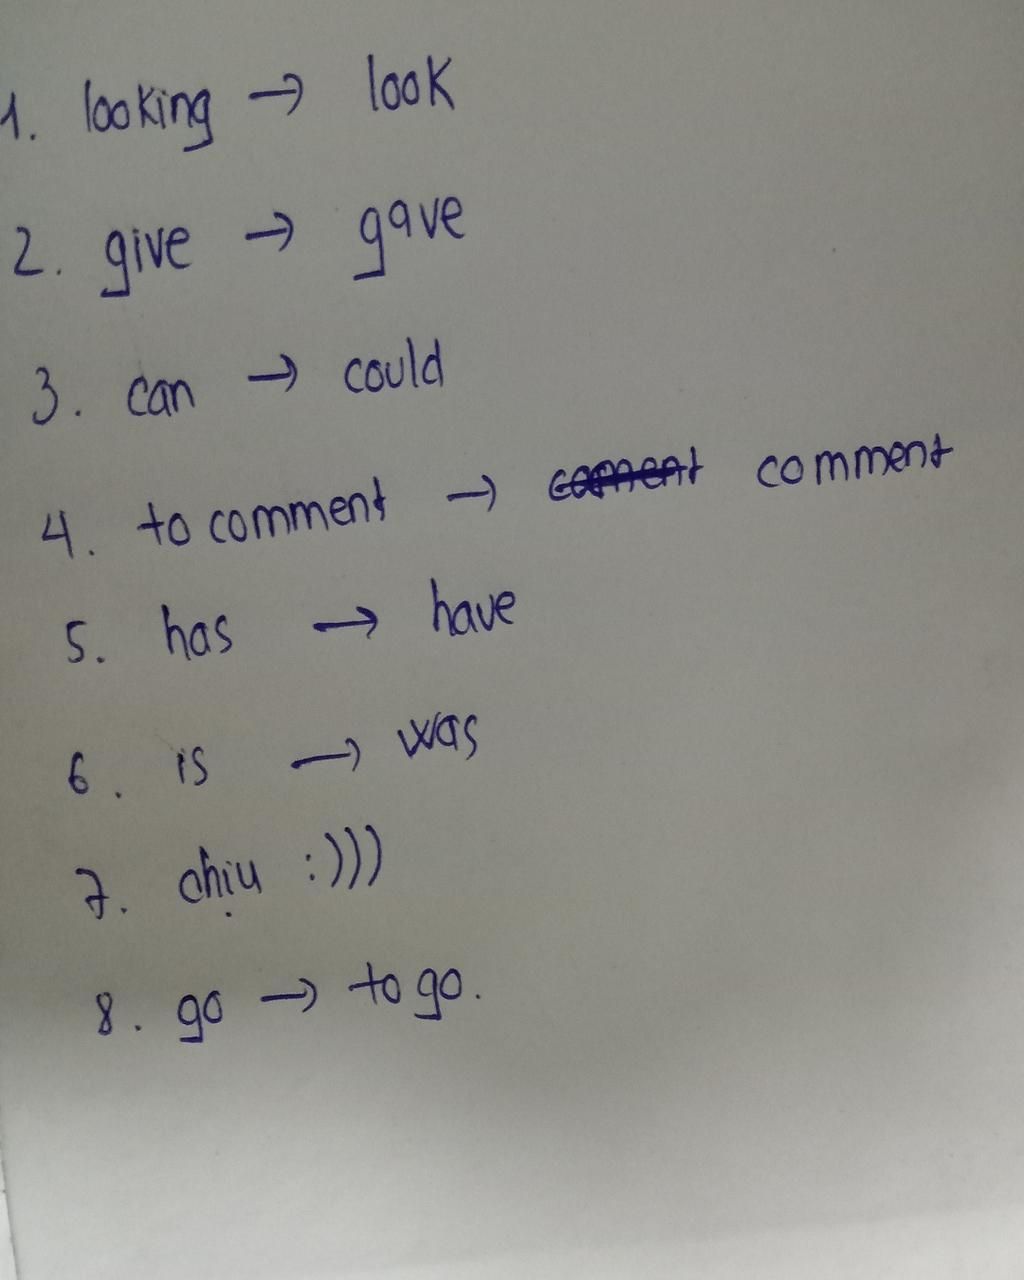 1. looking → look
2. give → gave
3. can → could
4. to comment → coment comment
5. has → have
6. is → was
7. chịu :)))
8. go → to go.